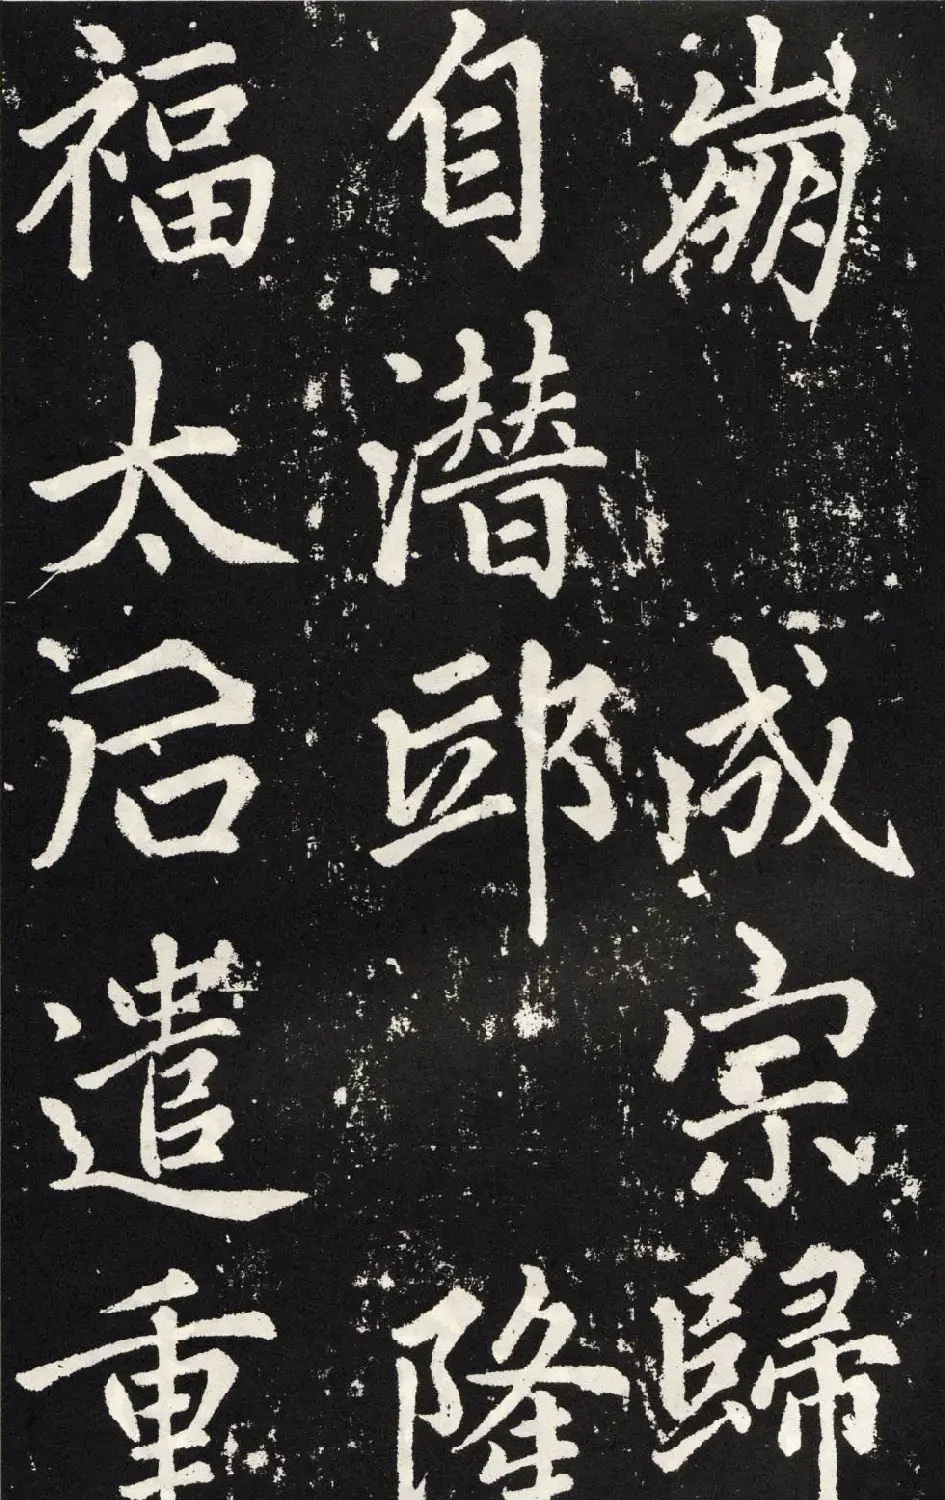 崩成宗歸
自潛邸隆
福太后遣重